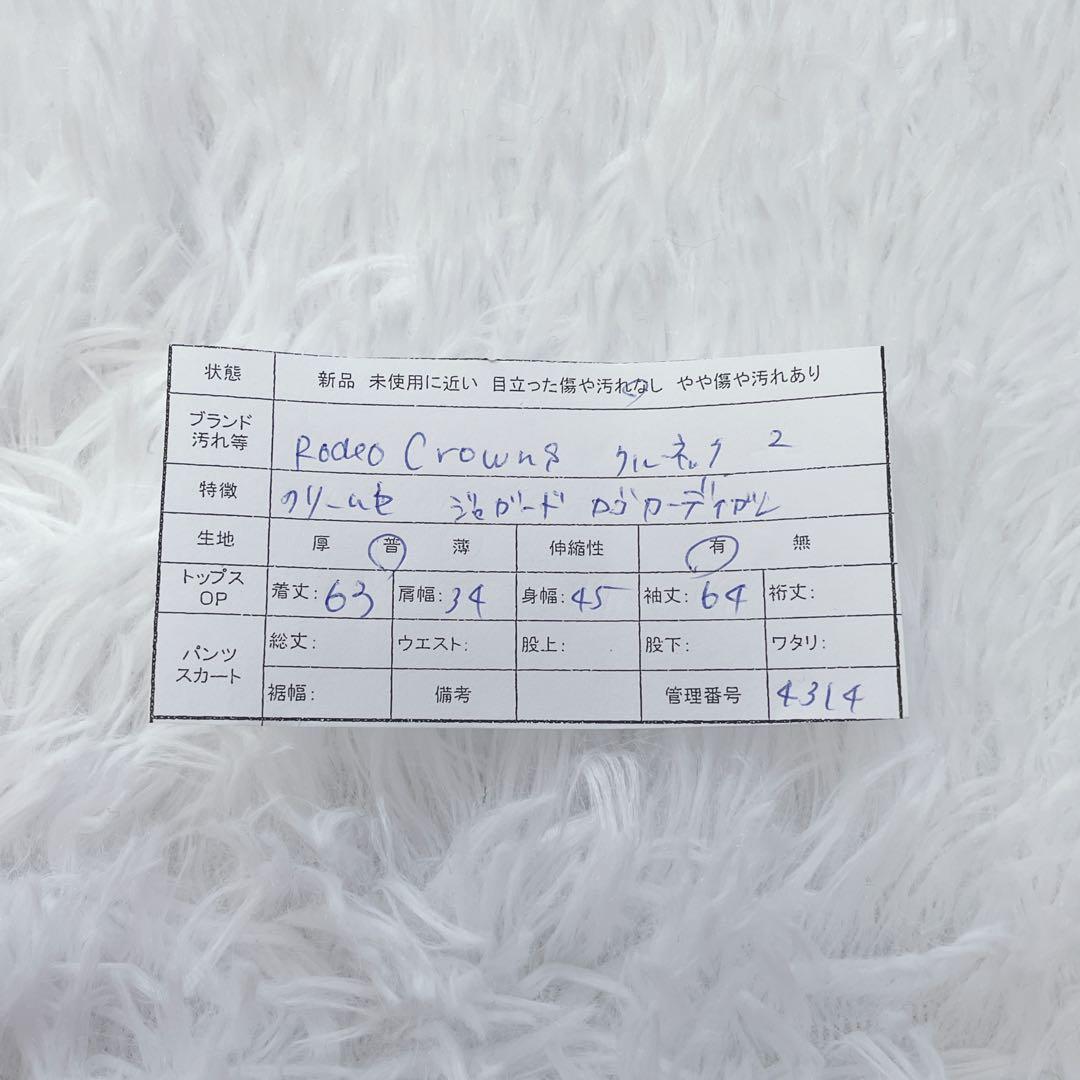 状態 新品 未使用に近い 目立った傷や汚れなし やや傷や汚れあり
ブランド
汚れ等 Rodeo Crowns クルーネック 2
特徴 クリーム色 ジャガード ロゴカーディガン
生地 厚 普 薄 伸縮性 有 無
トップス
OP 着丈: 63 肩幅: 34 身幅: 45 袖丈: 64 裄丈:
パンツ
スカート 総丈: ウエスト: 股上: 股下: ワタリ:
裾幅: 備考 管理番号 4314